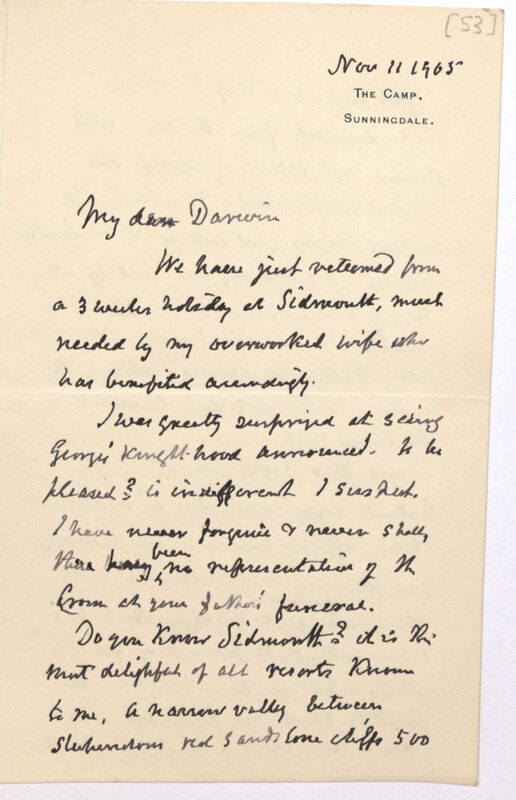 [53]
Nov 11 1905
THE CAMP,
SUNNINGDALE.
My dear Darwin
We have just returned from
a 3 weeks holiday at Sidmouth, much
needed by my overworked wife who
has benefited accordingly.
I was greatly surprized at seeing
George's Knight-hood announced. Is he
pleased? is indifferent I suspect.
I have never forgiven & never shall
there having been no representation of the
Crown at your father's funeral.
Do you know Sidmouth? it is the
most delightful of all resorts known
to me, a narrow valley between
stupendous red sandstone cliffs 500